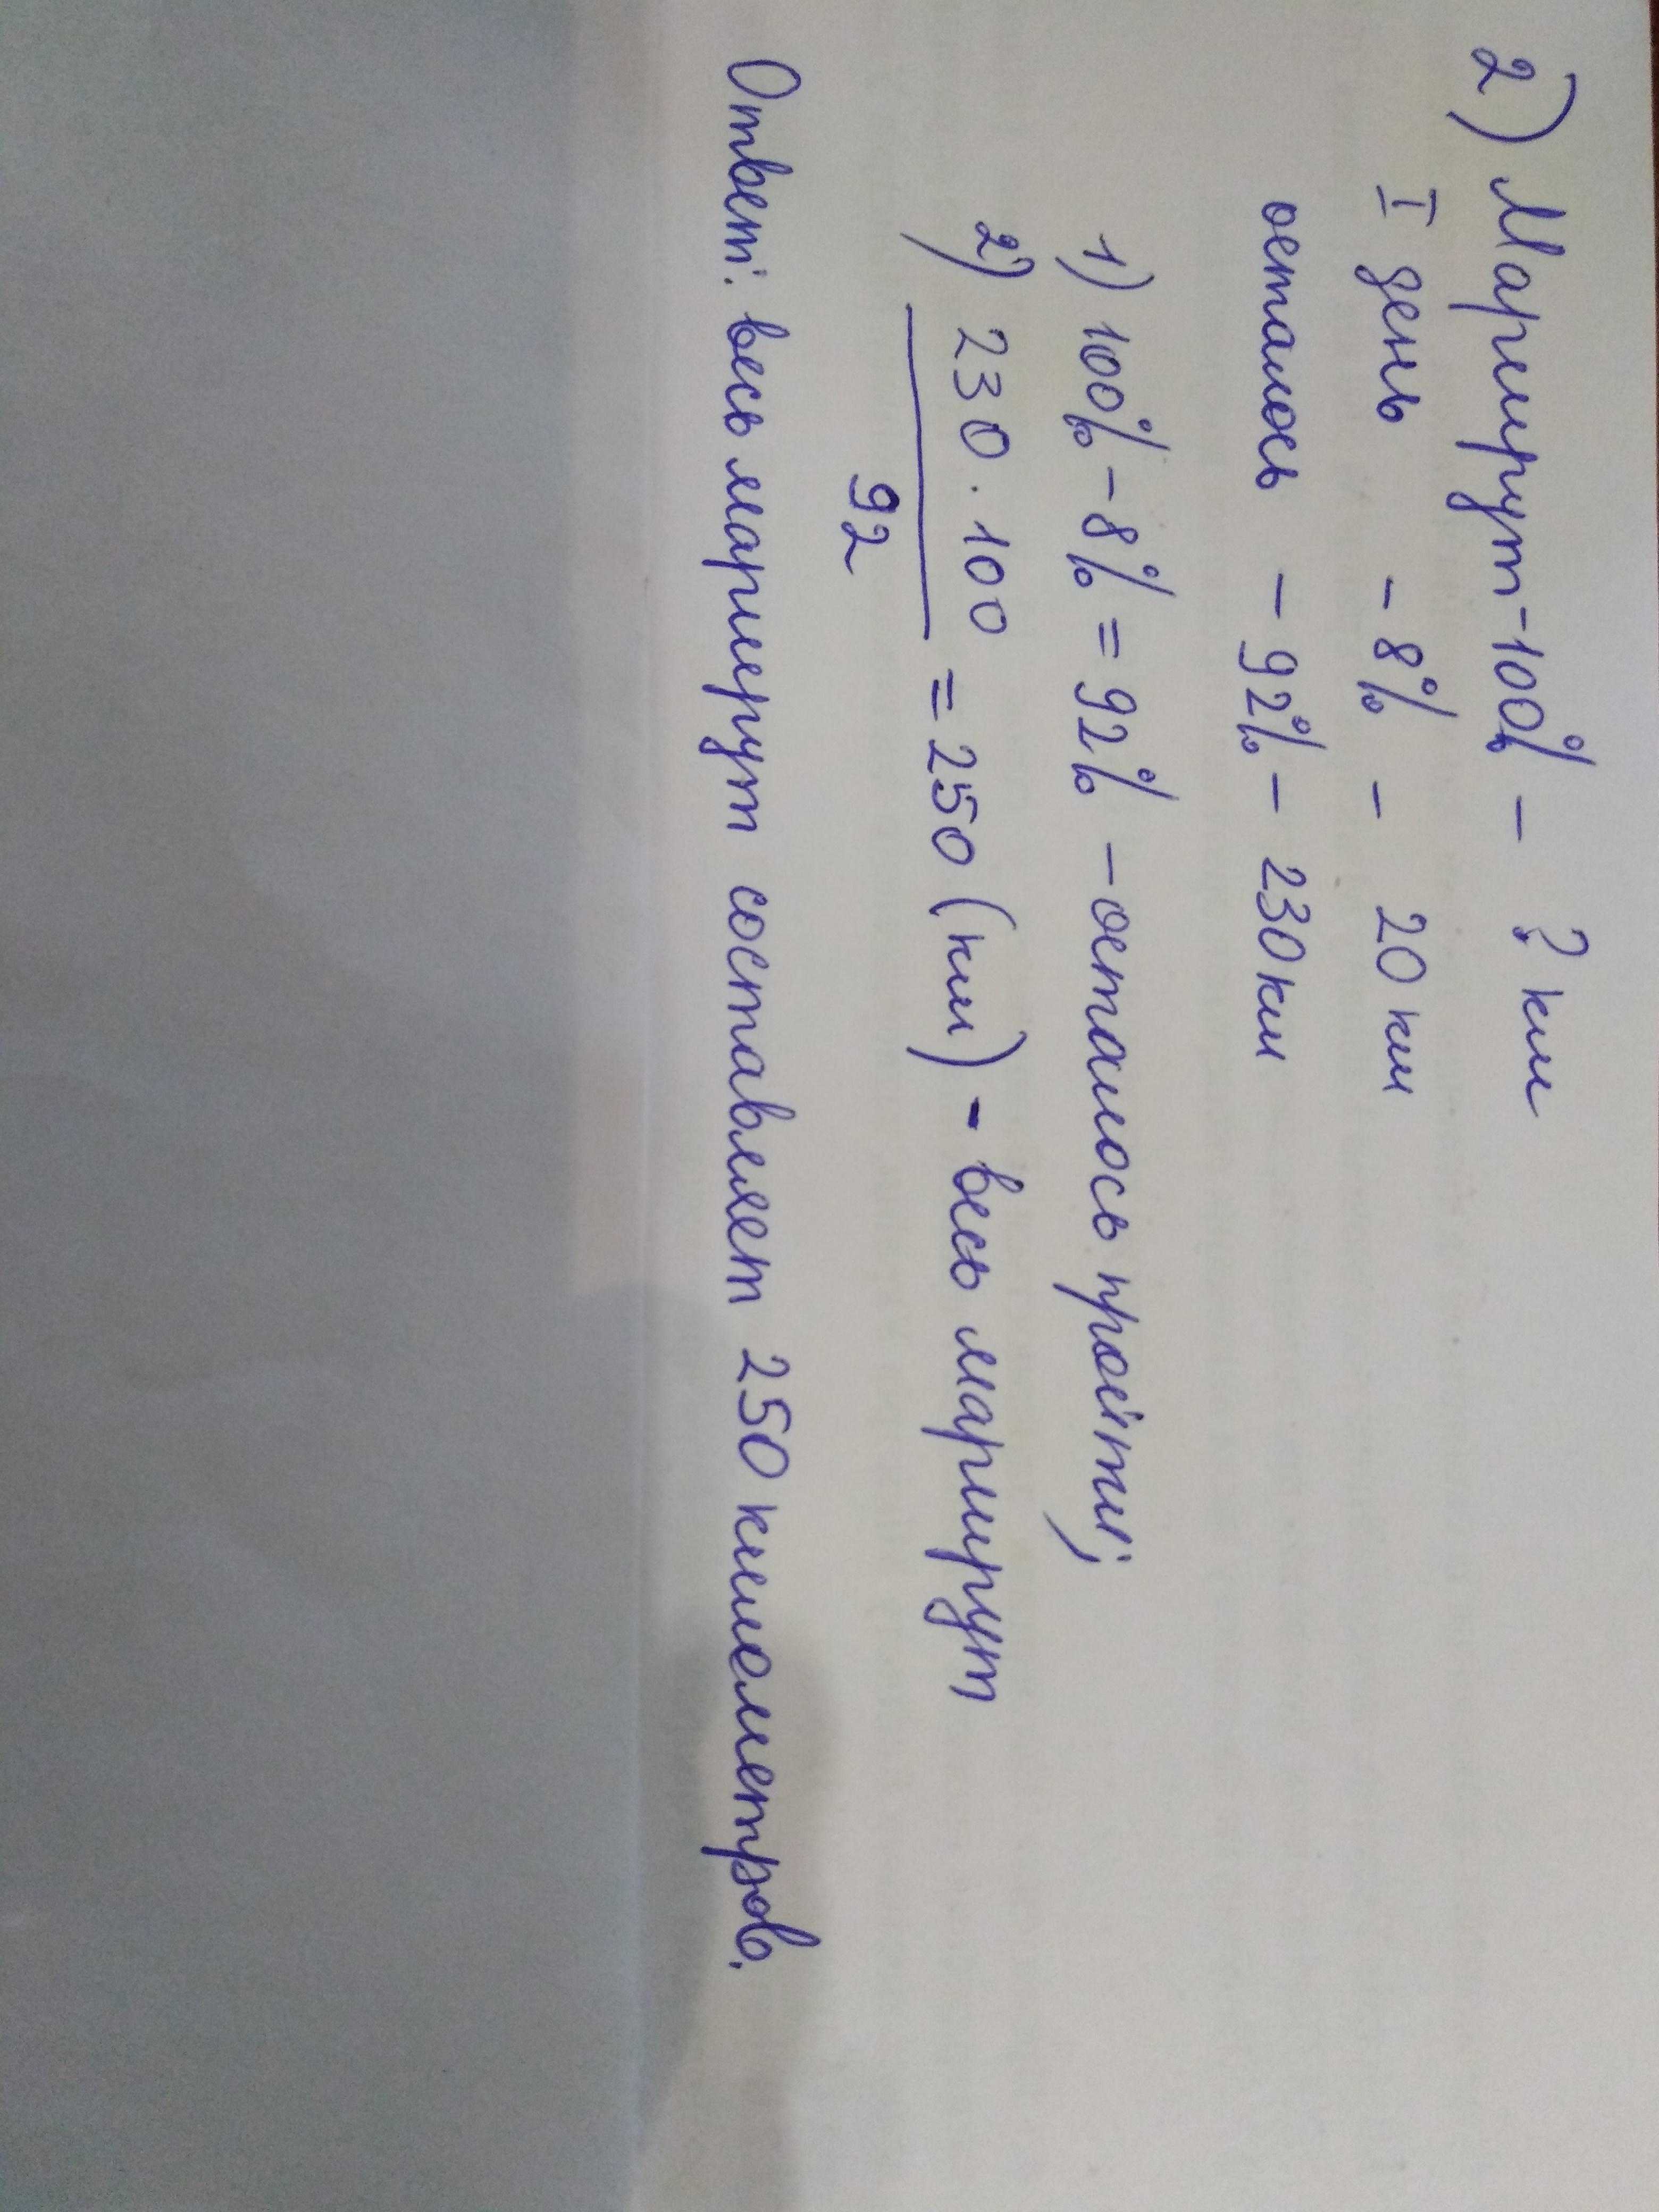 2) Маршрут - 100% - ? км
I день - 8% - 20 км
осталось - 92% - 230 км
1) 100% - 8% = 92% - осталось пройти;
2) 230 · 100
92
= 250 (км) - весь маршрут
Ответ: весь маршрут составляет 250 километров.